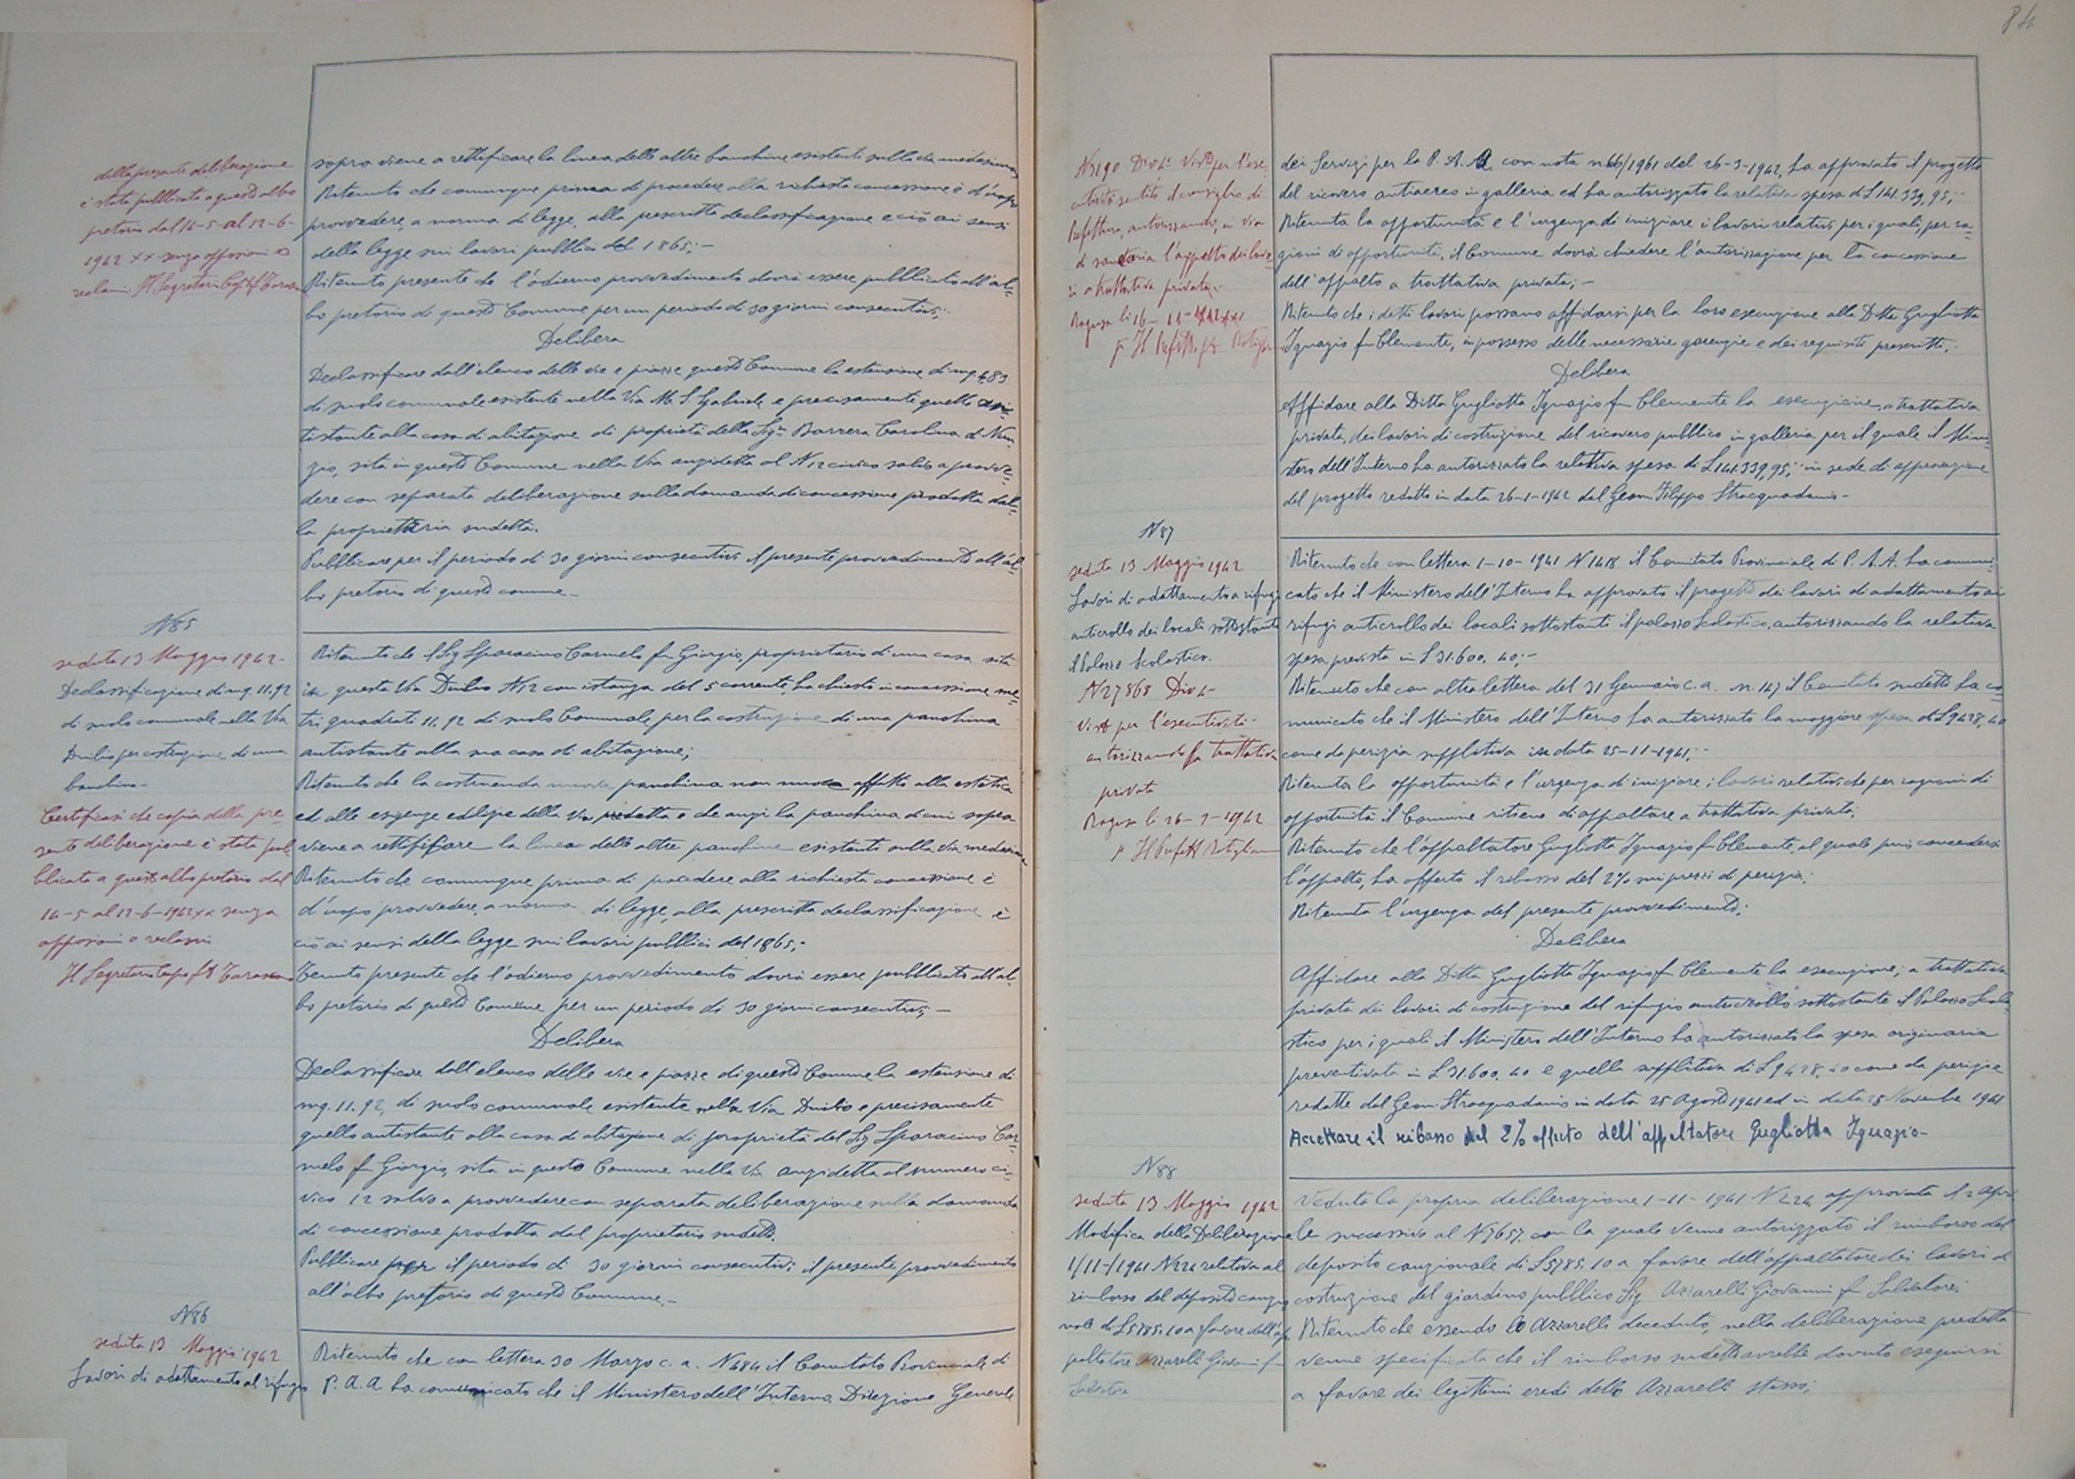 della presente deliberazione
è stata pubblicata a questo albo
pretorio dal 14-5- al 12-6-
1942 XX senza opposizioni o
reclami Il Segretario Capo f° Tarascon
sopra viene a rettificare la linea delle altre banchine esistenti sulla via medesima
Ritenuto che comunque prima di procedere alla richiesta concessione è d'uopo
provvedere, a norma di legge, alla prescritta declassificazione e ciò ai sensi
della legge sui lavori pubblici del 1865;-
Ritenuto presente che l'odierno provvedimento dovrà essere pubblicato all'al-
bo pretorio di questo Comune per un periodo di 30 giorni consecutivi;-
Delibera
Declassificare dall'elenco delle vie e piazze questo Comune la estensione di mq. 4,83
di suolo comunale esistente nella Via M. S. Gabriele e precisamente quello an-
tistante alla casa di abitazione di proprietà della Sig.ra Barrera Carolina di Nun-
zio, sita in questo Comune nella Via anzidetta al N 12 civico salvo a provve-
dere con separata deliberazione sulla domanda di concessione prodotta dal-
la proprietaria sudetta.
Pubblicare per il periodo di 30 giorni consecutivi il presente provvedimento all'al-
bo pretorio di questo comune.-
N 85
seduta 13 Maggio 1942-
Declassificazione di mq. 11.92
di suolo comunale nella Via
Duilio per costruzione di una
banchina-
Certificasi che copia della pre-
sente deliberazione è stata pub-
blicata a questo albo pretorio dal
14-5 al 12-6-1942 XX senza
opposizioni o reclami
Il Segretario Capo f° Tarascon
Ritenuto che il Sig Sparacino Carmelo fu Giorgio, proprietario di una casa sita
in questa Via Duilio N 12 con istanza del 5 corrente, ha chiesto in concessione me-
tri quadrati 11.92 di suolo Comunale, per la costruzione di una panchina
antistante alla sua casa di abitazione;
Ritenuto che la costruenda nuova panchina non nuoce affatto alla estetica
ed alle esigenze edilizie della Via predetta e che anzi la panchina di cui sopra
viene a rettifificare la linea delle altre panchine esistenti sulla via medesima
Ritenuto che comunque prima di procedere alla richiesta concessione è
d'uopo provvedere, a norma di legge, alla prescritta declassificazione e
ciò ai sensi della legge sui lavori pubblici del 1865;-
Tenuto presente che l'odierno provvedimento dovrà essere pubblicato all'al-
bo pretorio di questo Comune per un periodo di 30 giorni consecutivi;-
Delibera
Declassificare dall'elenco delle vie e piazze di questo Comune la estensione di
mq. 11.92, di suolo comunale esistente nella Via Duilio e precisamente
quello antistante alla casa di abitazione di proprietà del Sig Sparacino Car-
melo fu Giorgio, sita in questo Comune nella Via anzidetta al numero ci-
vico 12 salvo a provvedere con separata deliberazione sulla domanda
di concessione prodotta dal proprietario sudetto.
Pubblicare per il periodo di 30 giorni consecutivi il presente provvedimento
all'albo pretorio di questo Comune.-
N 86
seduta 13 Maggio 1942
Lavori di adattamento al rifugio
Ritenuto che con lettera 30 Marzo c. a. N 484 il Comitato Provinciale di
P. A. A ha comunicato che il Ministero dell'Interno, Direzione Generale
84
N 3190 Div 4ª Visto per l'ese-
cutività sentito il consiglio di
Prefettura, autorizzando, in via
di sanatoria l'appalto dei lavo-
ri a trattativa privata.-
Ragusa li 16-11-1942 XXI
p Il Prefetto f°
dei Servizi per la P. A. A. con nota n 66/1961 del 26-3-1942, ha approvato il progetto
del ricovero antiaereo in galleria ed ha autorizzato la relativa spesa di L 141.339,95;-
Ritenuta la opportunità e l'urgenza di iniziare i lavori relativi per i quali, per ra-
gioni di opportunità, il Comune dovrà chiedere l'autorizzazione per la concessione
dell'appalto a trattativa privata;-
Ritenuto che i detti lavori possano affidarsi per la loro esecuzione alla Ditta Gugliotta
Ignazio fu Clemente, in possesso delle necessarie garenzie e dei requisiti prescritti;-
Delibera
Affidare alla Ditta Gugliotta Ignazio fu Clemente la esecuzione, a trattativa
privata, dei lavori di costruzione del ricovero pubblico in galleria per il quale il Mini-
stero dell'Interno ha autorizzato la relativa spesa di L 141.339,95;- in sede di approvazione
del progetto redatto in data 26-1-1942 dal Geom Filippo Stracquadanio-
N 87
seduta 13 Maggio 1942
Lavori di adattamento a rifugi
anticrollo dei locali sottostanti
il Palazzo Scolastico.
N 27868 Div 4-
Visto per l'esecutività-
autorizzando la trattativa
privata
Ragusa li 26-9-1942
p Il Prefetto
Ritenuto che con lettera 1-10-1941 N 1418 il Comitato Provinciale di P. A. A. ha comuni-
cato che il Ministero dell'Interno ha approvato il progetto dei lavori di adattamento ai
rifugi anticrollo dei locali sottostanti il palazzo Scolastico, autorizzando la relativa
spesa prevista in L 31.600, 40;-
Ritenuto che con altra lettera del 31 Gennaio c. a. n. 147 il Comitato sudetto ha co-
municato che il Ministero dell'Interno ha autorizzato la maggiore spesa di L 9428,40
come da perizia suppletiva in data 25-11-1941;-
Ritenuta la opportunità e l'urgenza di iniziare i lavori relativi che per ragioni di
opportunità il Comune ritiene di appaltare a trattativa privata;
Ritenuto che l'appaltatore Gugliotta Ignazio fu Clemente, al quale può concedersi
l'appalto, ha offerto il ribasso del 2% sui prezzi di perizia;
Ritenuta l'urgenza del presente provvedimento;
Delibera
Affidare alla Ditta Gugliotta Ignazio fu Clemente la esecuzione, a trattativa
privata dei lavori di costruzione del rifugio anticrollo sottostante il Palazzo Scola-
stico per i quali il Ministero dell'Interno ha autorizzato la spesa originaria
preventivata in L 31.600, 40 e quella suppletiva di L 9428,40 come da perizie
redatte dal Geom Stracquadanio in data 25 Agosto 1941 ed in data 25 Novembre 1941
Accettare il ribasso del 2% offerto dell'appaltatore Gugliotta Ignazio-
N 88
seduta 13 Maggio 1942
Modifica della Deliberazione
1/11-/1941 N 224 relativa al
rimborso del deposito cauzio
nale di L 5785.10 a favore dell'ap
paltatore Azzarelli Giovanni fu
Salvatore
Veduta la propria deliberazione 1-11-1941 N 224 approvata il 2 apri-
le successivo al N 7657, con la quale venne autorizzato il rimborso del
deposito cauzionale di L 5785.10 a favore dell'appaltatore dei lavori di
costruzione del giardino pubblico Sig Azzarelli Giovanni fu Salvatore;
Ritenuto che essendo lo Azzarelli deceduto, nella deliberazione predetta
venne specificato che il rimborso sudetto avrebbe dovuto eseguirsi
a favore dei legittimi eredi dello Azzarelli stesso;